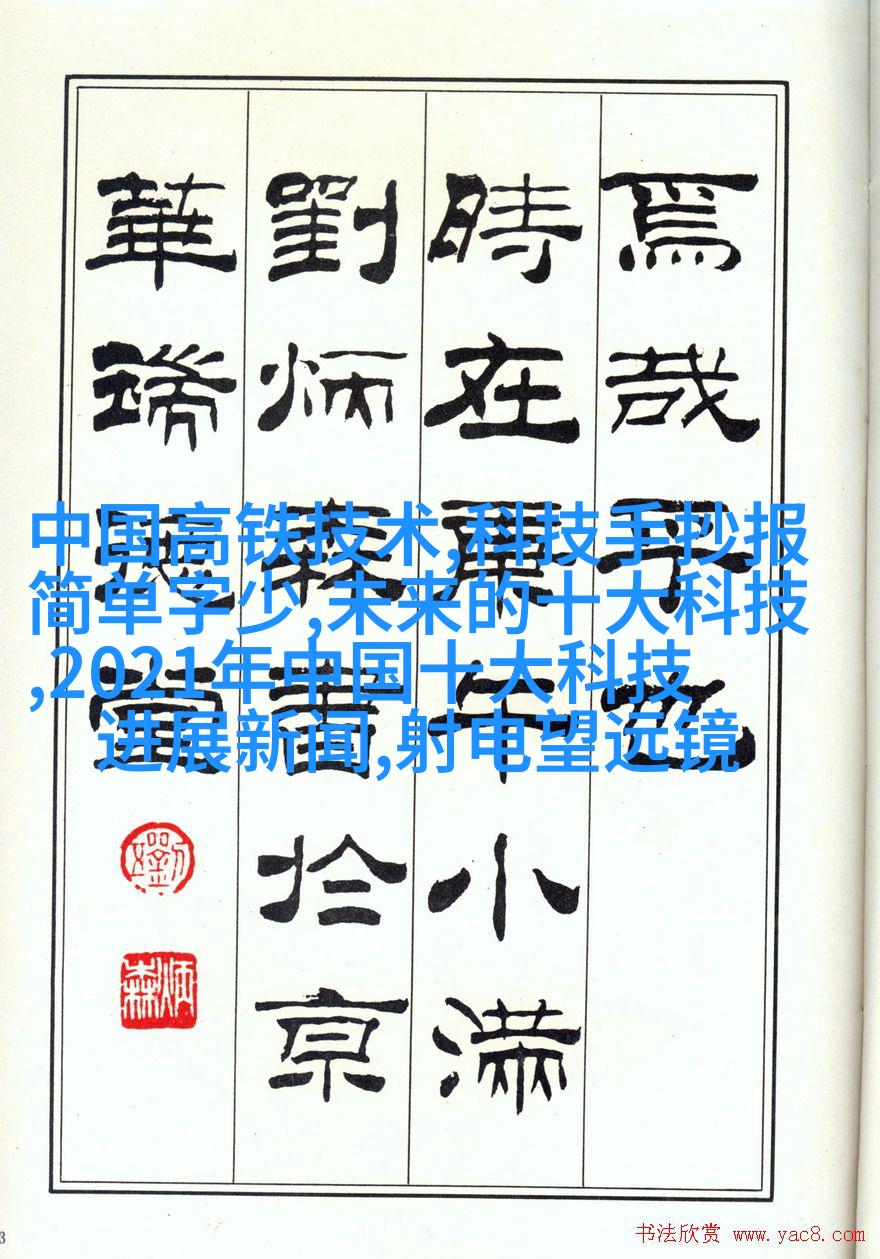 焉哉乎也
時在庚午小滿
劉炳森書於京
華堂
炳森
中国高铁技术,科技手抄报
简单字少,未来的十大科技
,2021年中国十大科技
进展新闻,射电望远镜
3
书法欣赏 www.yac8.com